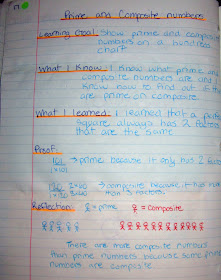 Prime and Composite numbers
Learning Goal: Show prime and composite
numbers on a hundreds
chart
What I Know: I know what prime and
composite numbers are and I
know how to find out if they
are prime or composite
What I learned: I learned that a perfect
square always has 2 factors
that are the same
Proof:
101 → prime because it only has 2 factors
1×101
→ composite because it has more
than 2 factors.
Reflection = prime = composite
There are more composite numbers
than prime numbers because some prime
numbers are composite.